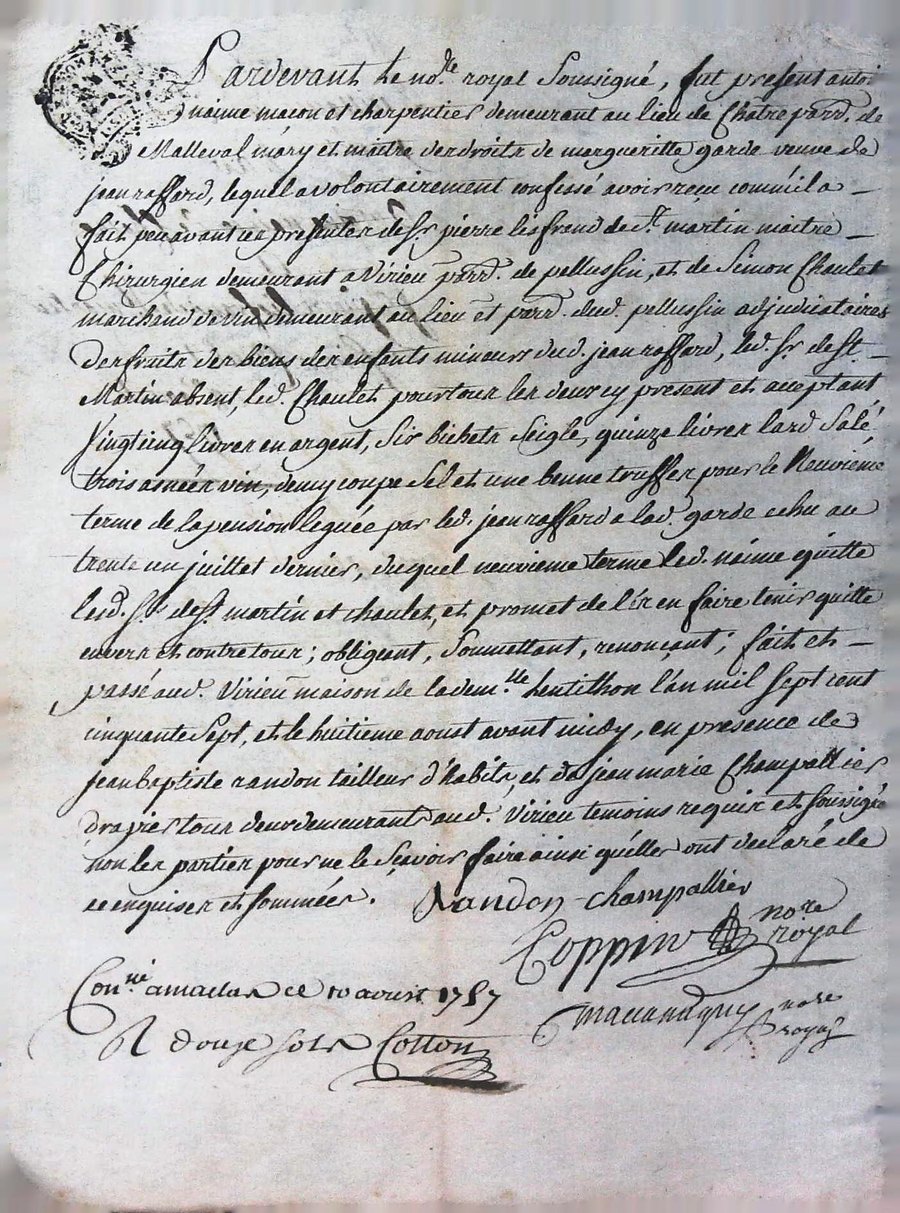 Pardevant Le no.re royal Soussigné, fut present antoi
naime maçon et charpentier demeurant au lieu de Chatre parr. de
Malleval mary et maitre des droits de margueritte garde veuve de
jean raffard, lequel a volontairement confessé avoir reçu comme il a
fait peu avant ces presentes de Sr pierre de St. martin maitre
Chirurgien demeurant a Virieu parr. de pellussin, et de Simon Chaulet
marchand de vin demeurant au lieu et parr. dud. pellussin adjudicataires
des fruits des biens des enfants mineurs dud. jean raffard, led. Sr de St.
Martin absent, led. Chaulet pour tous les deux cy present et acceptant
Vingt cinq livres en argent, Six bichets Seigle, quinze livres lard Salé
trois asnées vin, demy coupe Sel et une benne truffes pour le Neuvieme
terme de la pension leguée par led. jean raffard a lad. garde echu au
trente un juillet dernier, duquel neuvieme terme led. naime quitte
lesd. Srs de St. martin et chaulet, et promet de l'en faire tenir quitte
envers et contre tous; obligeant, Soumettant, renonçant; fait et
passé aud. Virieu maison de la dem.lle l'an mil Sept cent
cinquante Sept, et le huitieme aoust avant midy, en presence de
jean baptiste randon tailleur d'habits, et de jean marie Champallier
drapier tous deux demeurants aud. Virieu temoins requis et soussignés
non les parties pour ne le Sçavoir faire ainsi qu'elles ont declaré de
ce enquises et sommées. Randon Champallier
Coppin no.re royal
Con.lé a maclas ce 10 1757
no.re royal
R douze sols Cotton